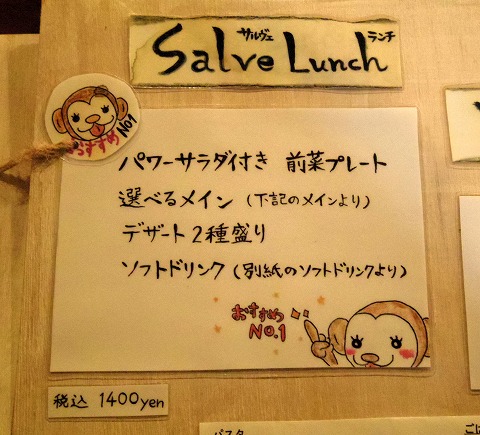 サルヴェ ランチ
Salve Lunch
おすすめ No1
パワーサラダ付き 前菜プレート
選べるメイン（下記のメインより）
デザート2種盛り
ソフトドリンク（別紙のソフトドリンクより）
おすすめ
NO.1
税込 1400yen
パスタ